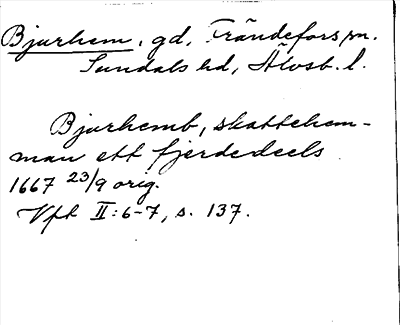 Bjurhem, gd, Frändefors sn.
Sundals hd, Älvsb. l.
Bjurhemb, skattehem-
man ett fjerdedeels
1667 23/9 orig.
Vft II:6-7, s. 137.